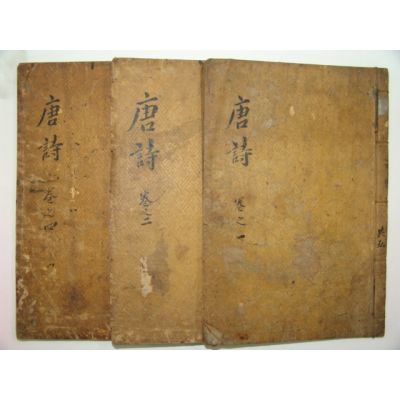 唐詩
卷之一
唐詩
卷之二
唐詩
卷之四